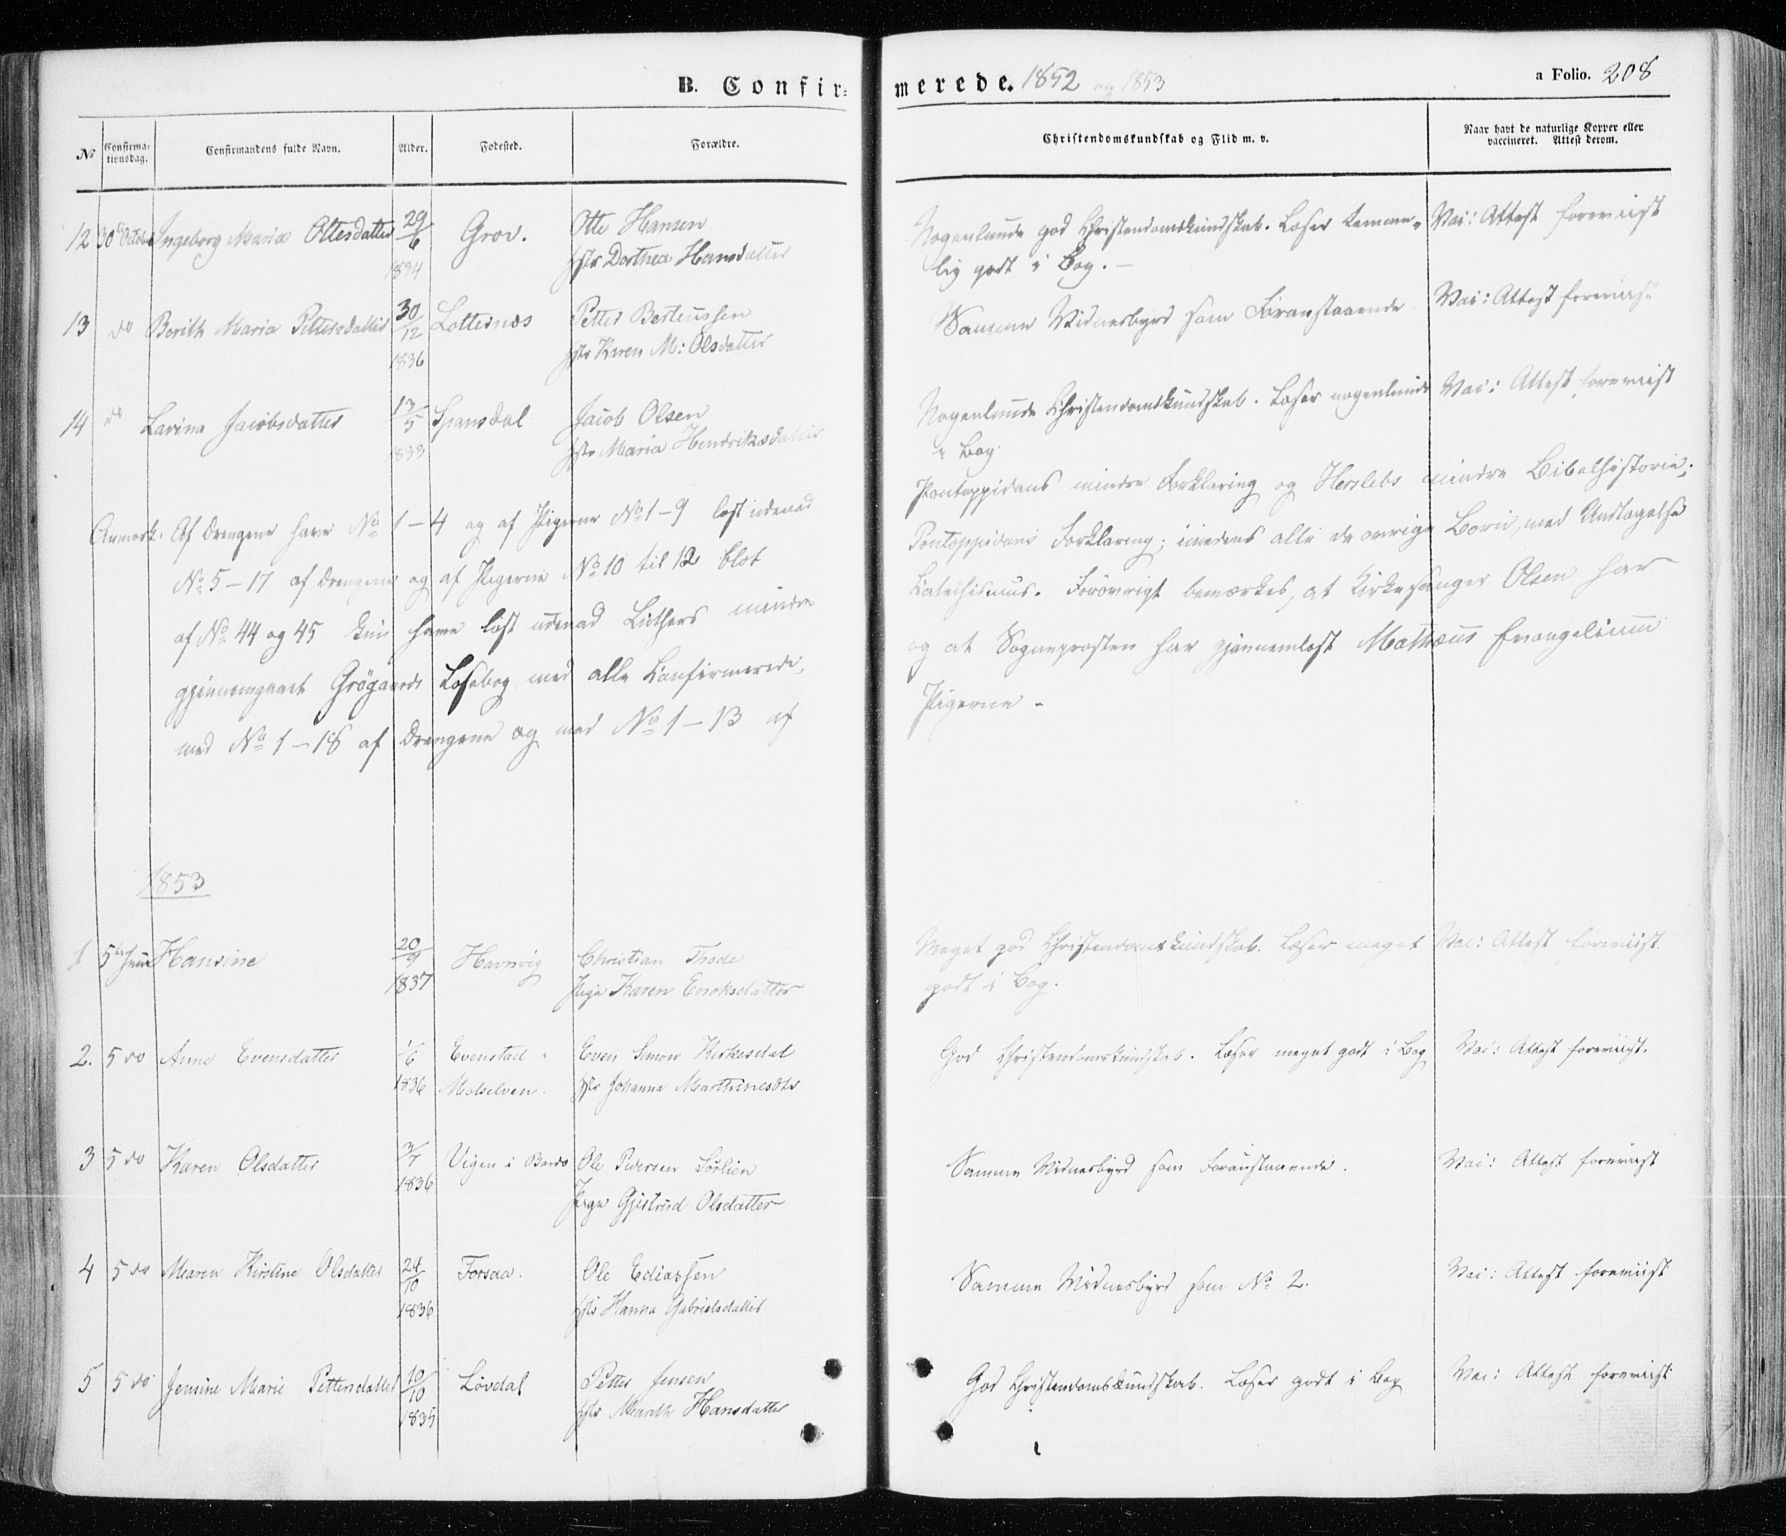 B. Confirmerede. 1852 og 1853
a Folio. 208
No Confirmationsdag. Confirmandens fulde Navn. Alder. Fødested. Forældre. Christendomskundskab og Flid m. v. Naar havt de naturlige Kopper eller vaccineret. Attest derom.
12 30te Octobr Ingeborg Maria Ottesdatter 29/6 1834 Grov. Otte Hansen Nogenlunde god Christendomskundskab. Læser temme- Vai: Attest foreviist
Dorthea Hansdatter lig godt i Bog. —
13 do Berith Maria Pettersdatter 30/12 1836 Lotternæs Petter Berteussen Samme Vidnesbyrd som Foranstaaende Vai: Attest foreviist
Karen M: Olsdatter
14 do Lavina Jacobsdatter 13/5 1833 Spansdal Jacob Olsen Nogenlunde Christendomskundskab. Læser nogenlunde Vai: Attest foreviist
Maria Hendriksdatter i Bog
Anmærk. Af Drengene have No 1 – 4 og af Pigerne No 1 – 9 læst udenad Pontoppidans mindre Forklaring og Herslebs mindre Bibelhistorie;
No 5 – 17 af Drengene og af Pigerne No 10 til 12 blot Pontoppidans Forklaring; imedens alle de øvrige Børn, med Undtagelse
af No 44 og 45 kun have læst udenad Luthers mindre Catechismus. Forøvrigt bemærkes, at Kirkesanger Olsen har
gjennemgaaet Grøgaards Læsebog med alle Confirmerede, og at Sogneprosten har gjennemlæst Mathæus Evangelium
med No 1 – 18 af Drengene og med No 1 – 13 af Pigerne –
1853
1 5te Juni Hansine 20/9 1837 Havnvig Christian Thode Meget god Christendomskundskab. Læser meget Vai: Attest foreviist.
Pige Karen Enoksdatter godt i Bog.
2. 5 do Anne Evensdatter 1836 Evenstad Even Simon Kirkesdal God Christendomskundskab. Læser meget godt i Bog Vai: Attest foreviist.
Maalselven. Johanna Marthinesdtr
3 5 do Karen Olsdatter 3/7 1836 Vigen i Bardo Ole Pedersen Sørlien Samme Vidnesbyrd som Foranstaaende. Vai: Attest foreviist
Pige Gjertrud Olsdatter
4 5 do Maren Kirstine Olsdatter 24/10 1836 Forsaa. Ole Ediassen Samme Vidnesbyrd som No 2. Vai: Attest foreviist
Hanna Gabrielsdatter
5 5 do Jensine Marie Pettersdatter 10/10 1835 Løvdal Petter Jensen God Christendomskundskab. Læser godt i Bog Vai: Attest foreviist
Mareth Hansdatter